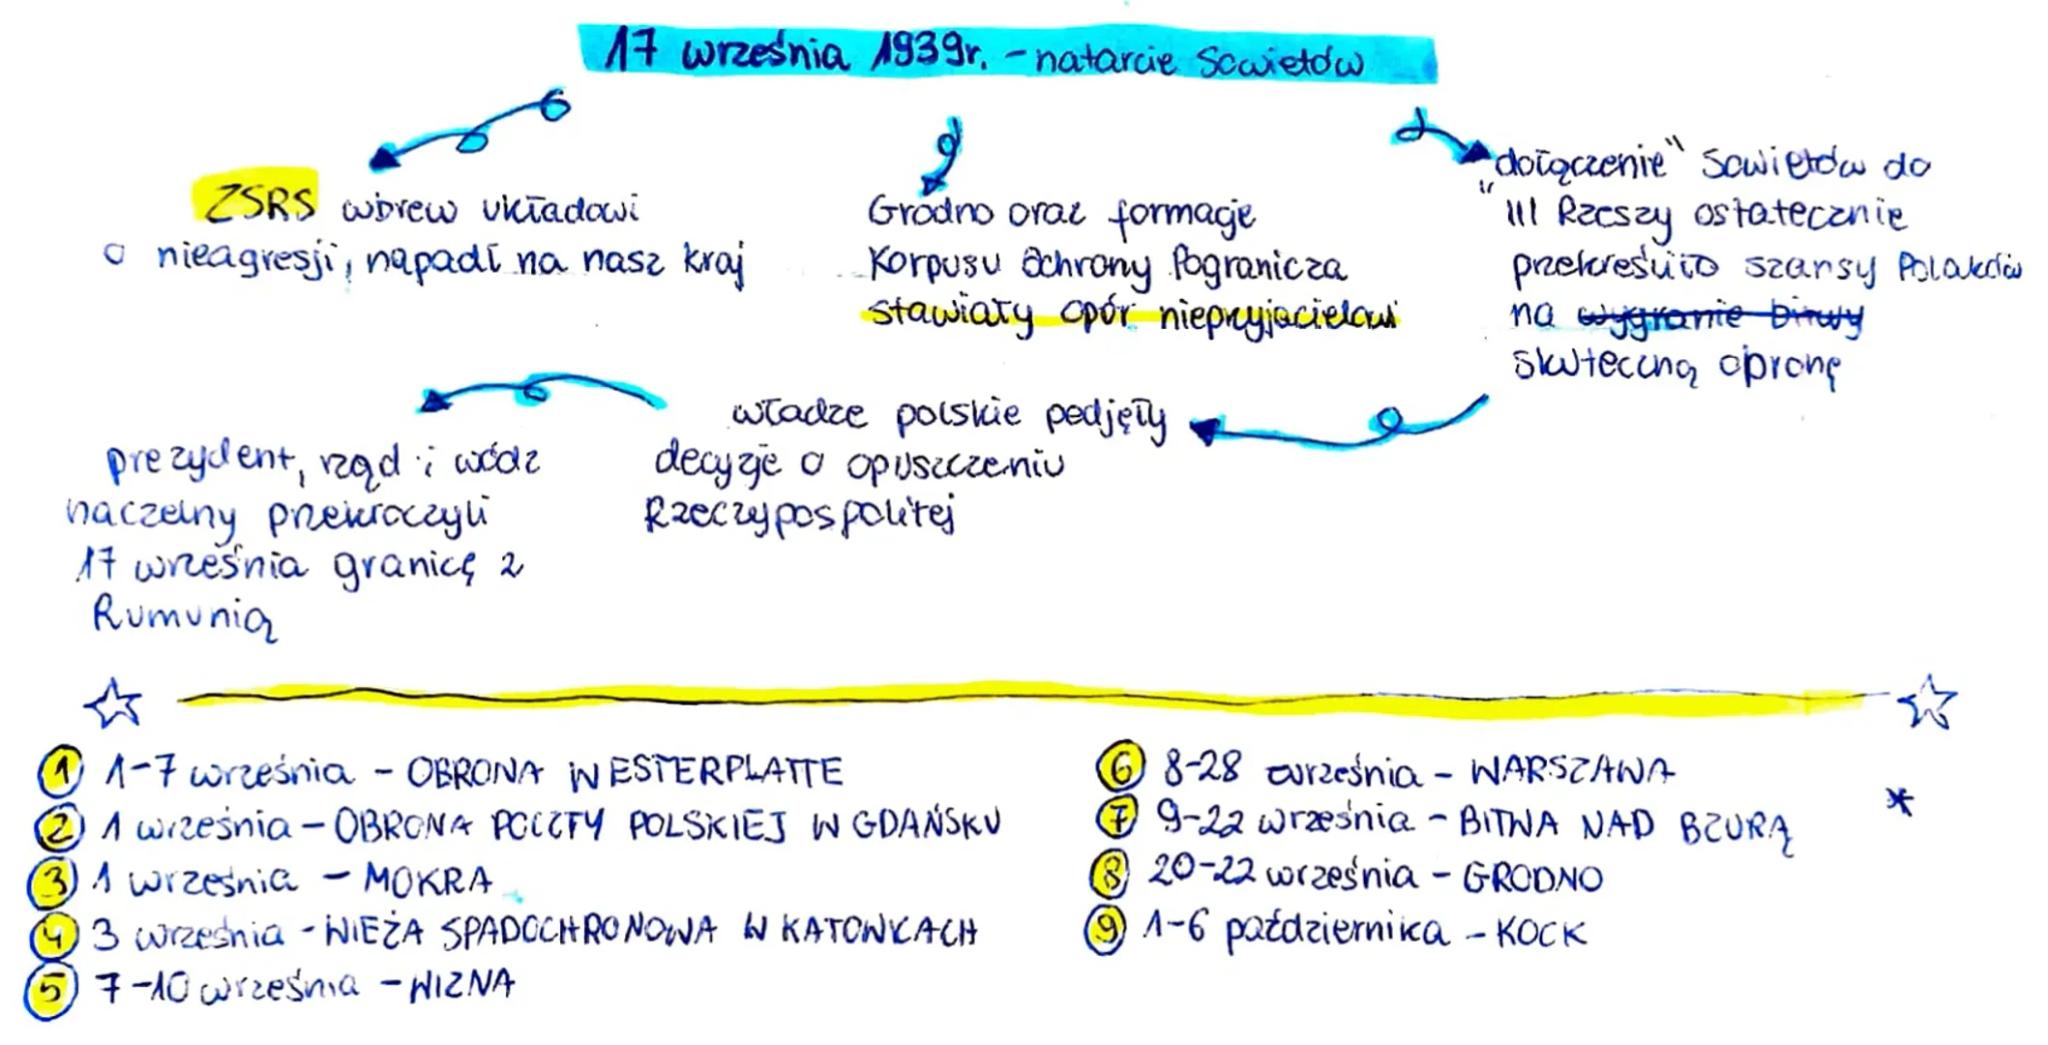 17 września 1939r. - natarcie Sowietów
ZSRS wbrew układowi
o nieagresji, napadł na nasz kraj
Grodno oraz formacje
Korpusu Ochrony Pogranicza
stawiały opór nieprzyjacielowi
dołączenie" Sowietów do
"III Rzeszy ostatecznie
przekreśliło szansy Polaków
na wygranie bitwy
skuteczną obronę
władze polskie podjęły
decyzje o opuszczeniu
Rzeczypospolitej
prezydent, rząd i wódz
naczelny przekroczyli
17 września granicę z
Rumunią
1 1-7 września - OBRONA WESTERPLATTE
2 1 września - OBRONA POCZTY POLSKIEJ W GDAŃSKU
3 1 września - MOKRA
4 3 września - WIEŻA SPADOCHRONOWA W KATOWICACH
5 7-10 września - WIZNA
6 8-28 września - WARSZAWA
7 9-22 września - BITWA NAD BZURĄ *
8 20-22 września - GRODNO
9 1-6 października - KOCK